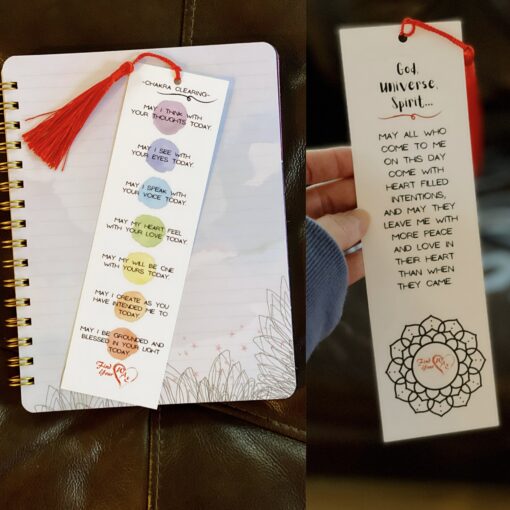 -CHAKRA CLEARING-
MAY I THINK WITH
YOUR THOUGHTS TODAY.
MAY I SEE WITH
YOUR EYES TODAY.
MAY I SPEAK WITH
YOUR VOICE TODAY.
MAY MY HEART FEEL
WITH YOUR LOVE TODAY.
MAY MY WILL BE ONE
WITH YOURS TODAY.
MAY I CREATE AS YOU
HAVE INTENDED ME TO
TODAY.
MAY I BE GROUNDED AND
BLESSED IN YOUR LIGHT
TODAY
Find
Your
God,
Universe,
Spirit...
MAY ALL WHO
COME TO ME
ON THIS DAY
COME WITH
HEART FILLED
INTENTIONS,
AND MAY THEY
LEAVE ME WITH
MORE PEACE
AND LOVE IN
THEIR HEART
THAN WHEN
THEY CAME
Find
Your